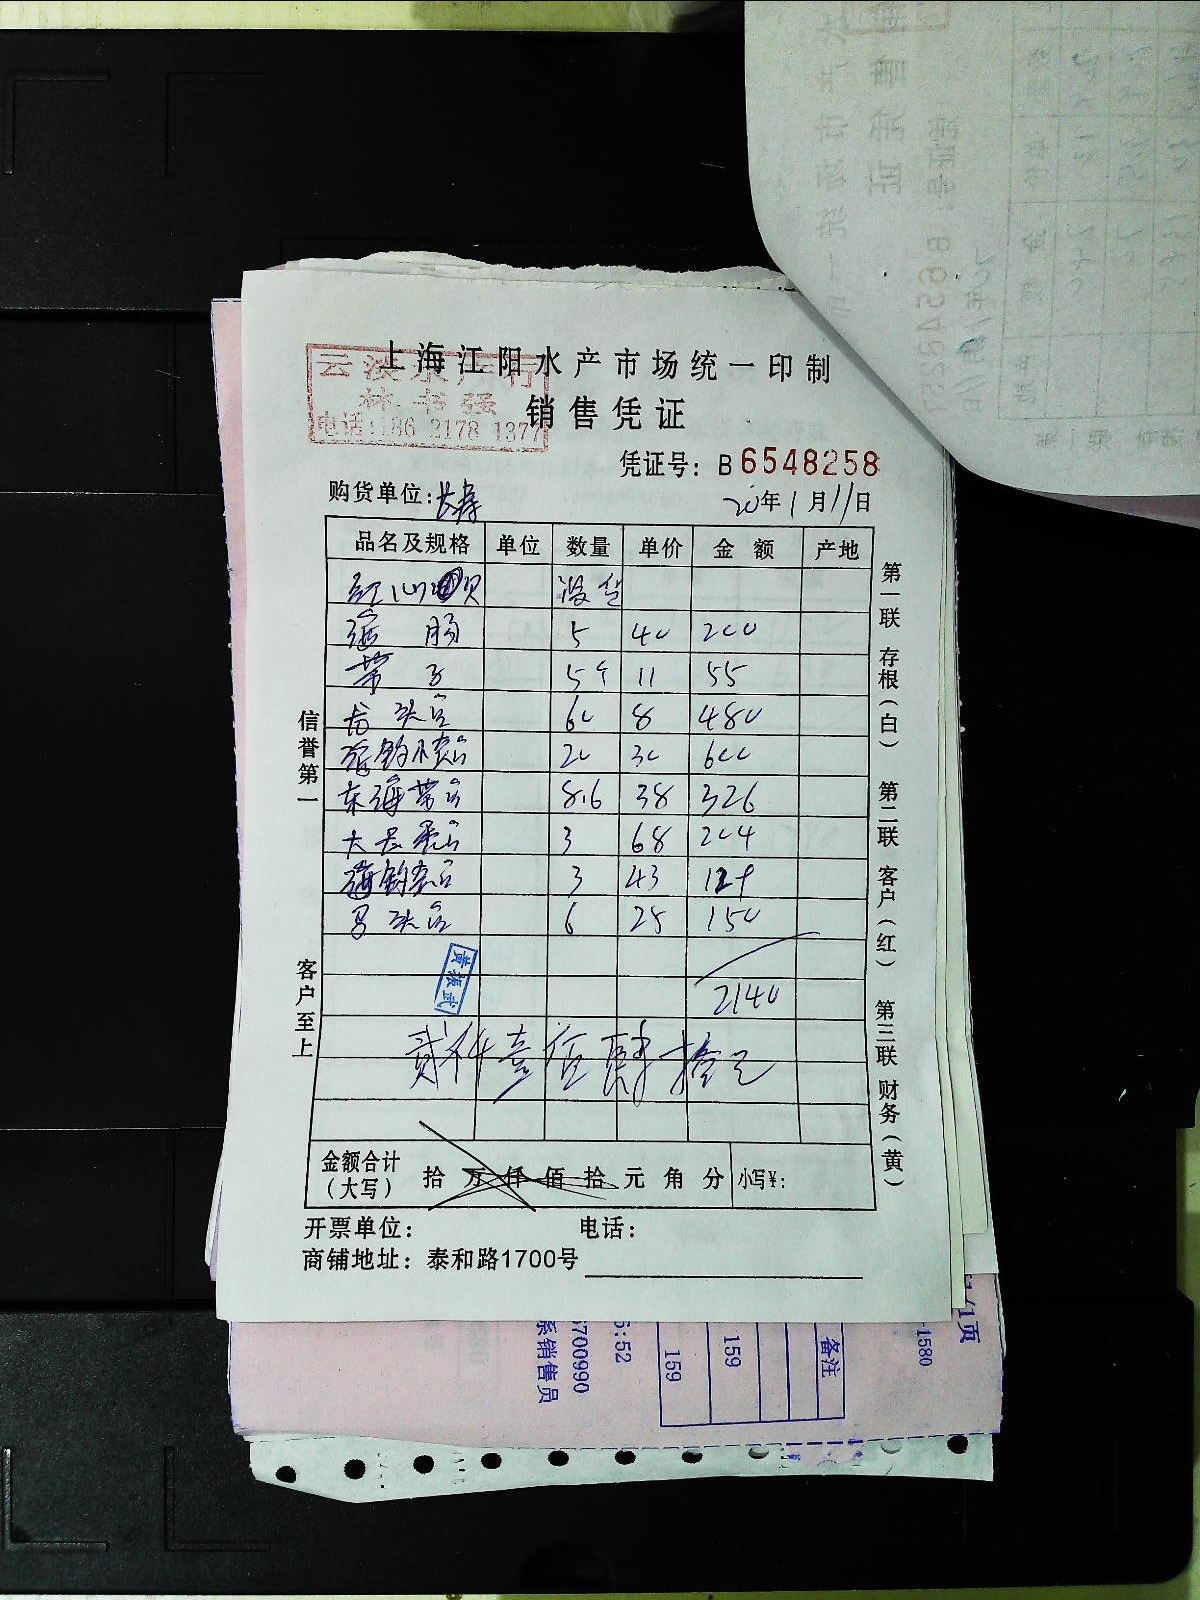 上海江阳水产市场统一印制
云波水产行
林书强
电话:186 2178 1377
销售凭证
凭证号: B6548258
购货单位:长寿
20年1月11日
品名及规格 单位 数量 单价 金额 产地
红 没货
海肠 5 40 200
带子 5个 11 55
龙头鱼 60 8 480
海钓小黄鱼 20 30 600
东海带鱼 8.6 38 326
大 3 68 204
海钓 3 43 129
马头鱼 6 25 150
黄振武
2140
贰仟壹佰肆拾元
金额合计
(大写)
拾万仟佰拾元角分
小写¥:
开票单位:
电话:
商铺地址: 泰和路1700号
信誉第一
客户至上
第一联 存根(白) 第二联 客户(红) 第三联 财务(黄)
备注
159
159
6:52
700990
系销售员
1/1页
-1580